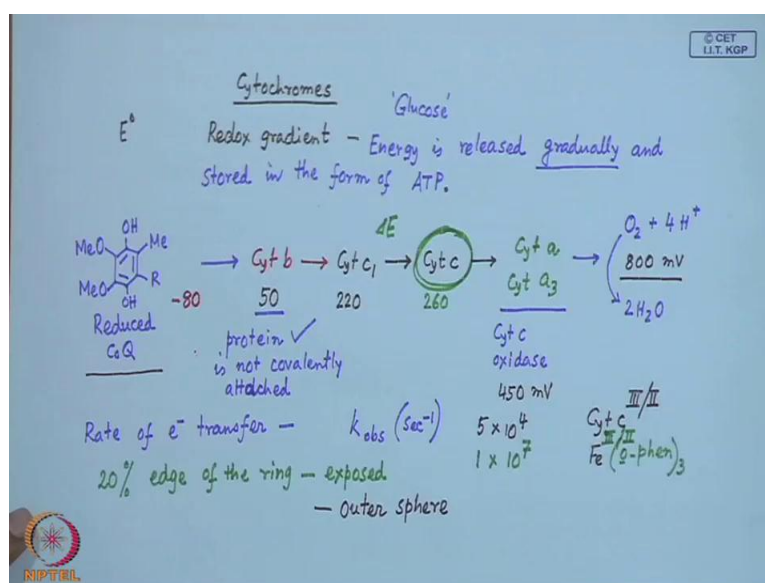 © CET
I.I.T. KGP
Cytochromes
'Glucose'
E°
Redox gradient – Energy is released gradually and
stored in the form of ATP.
OH
MeO
Me
MeO
R
OH
Reduced
CoQ
-80
→ Cyt b → Cyt c₁ → Cyt c → Cyt a
Cyt a₃ →
ΔE
O₂ + 4H⁺
800 mV
2H₂O
50
220
260
protein ✓
is not covalently
attached
Cyt c
oxidase
450 mV
Rate of e⁻ transfer – k obs (Sec⁻¹) 5 × 10⁴ Cyt c III/II
20% edge of the ring – exposed 1 × 10⁷ Fe III/II (o-phen)₃
– outer sphere
NPTEL